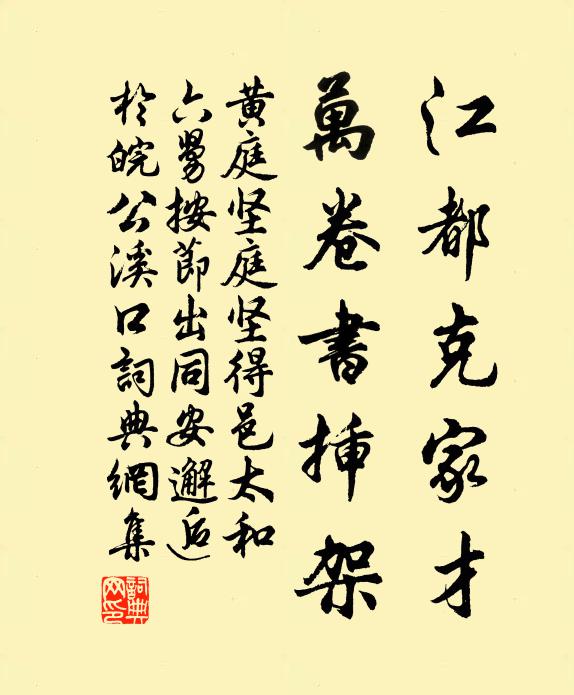 江都克家才
萬卷書揷架
黄庭坚庭坚得邑太和
六舅按節出同安邂逅
於皖公溪口詞典網集
詞典網印